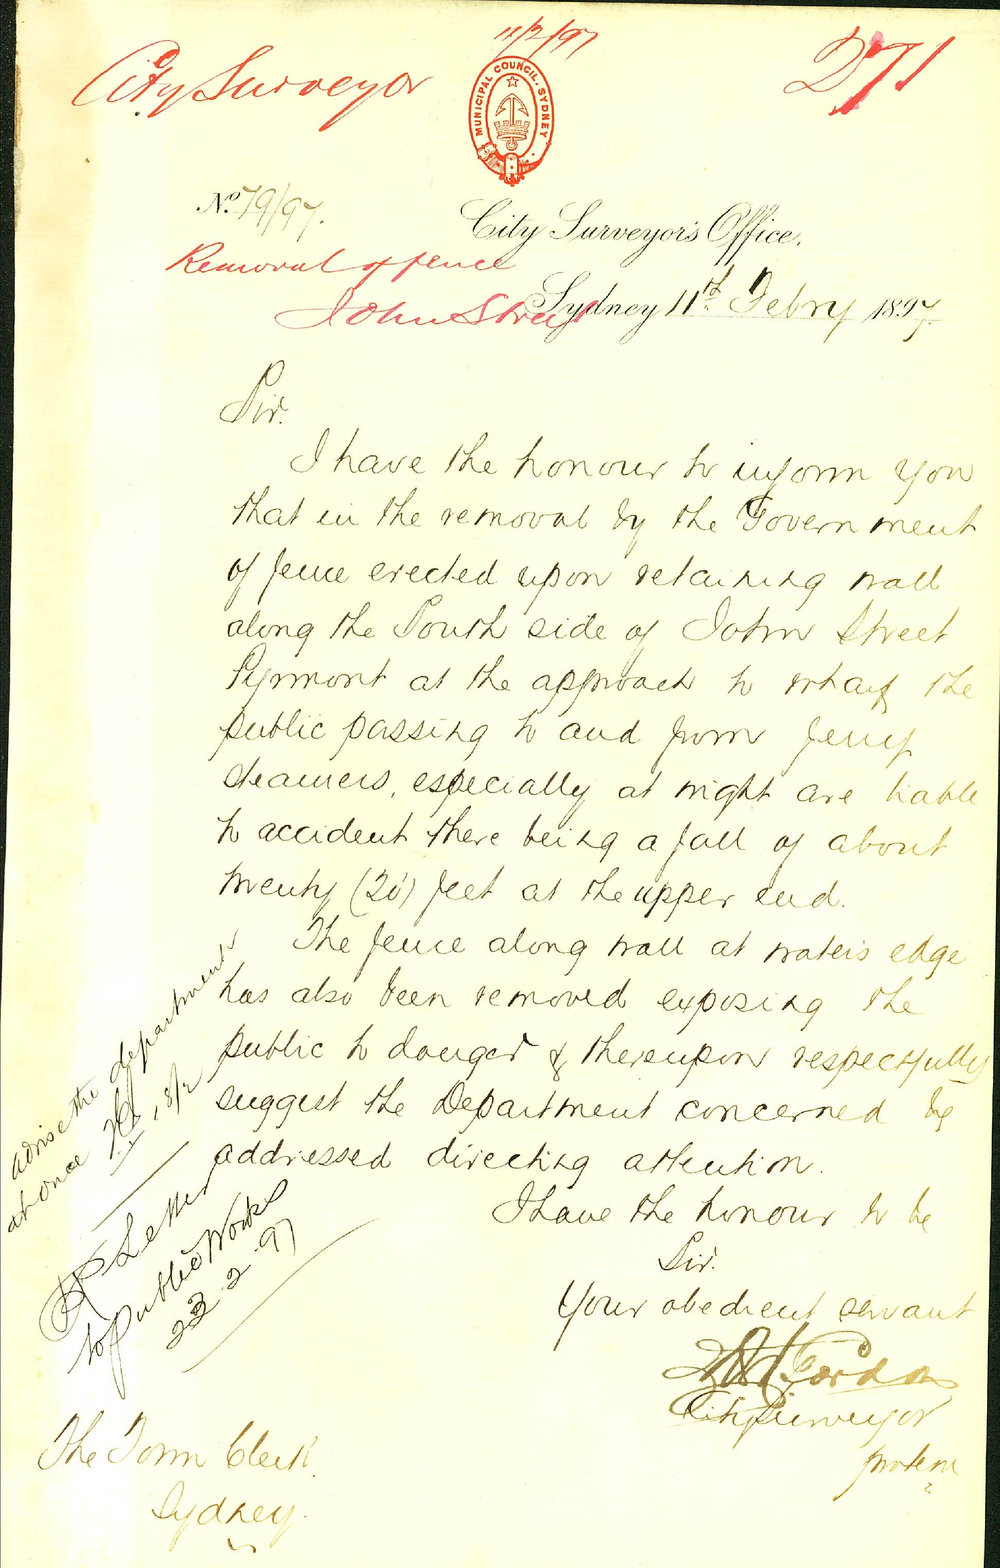 11/2/97
City Surveyor
D71
MUNICIPAL COUNCIL. SYDNEY
No. 79/97.
City Surveyor's Office,
Removal of fence
John Street
Sydney 11th Febry 1897.
Sir.
I have the honour to inform you
that in the removal by the Government
of fence erected upon retaining wall
along the South side of John Street
Pyrmont at the approach to wharf the
public passing to and from ferry
steamers, especially at night are liable
to accident there being a fall of about
twenty (20') feet at the upper end.
The fence along wall at waters edge
has also been removed exposing the
public to danger & thereupon respectfully
suggest the Department concerned be
addressed directing attention.
I have the honour to be
Sir.
Your obedient servant
Gordon
City Surveyor
protem
advise the department
at once 18/2
Letter
to Public Works
23.2.97
The Town Clerk.
Sydney.